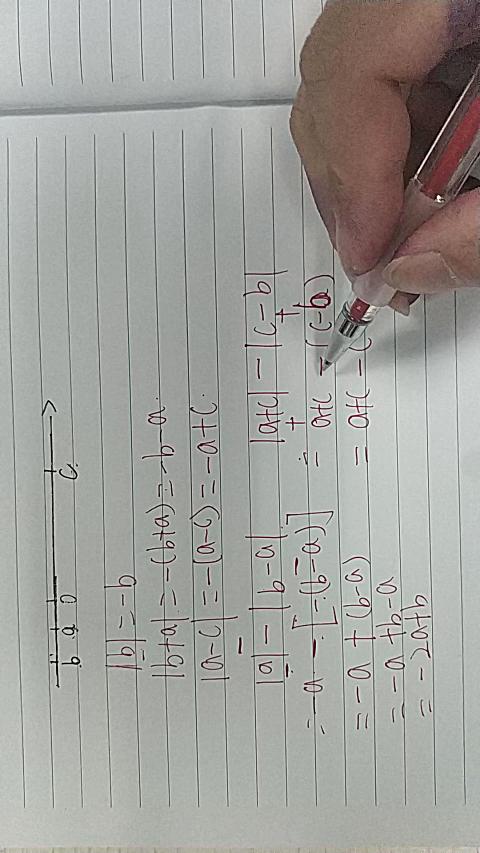 b a 0 c
|b| = -b
|b+a| = -(b+a) = -b-a.
|a-c| = -(a-c) = -a+c.
|a| - |b-a|
= -a - [-(b-a)]
= -a + (b-a)
= -a + b - a
= -2a + b
|a+c| - |c-b|
= a+c - (c-b)
= a+c - c